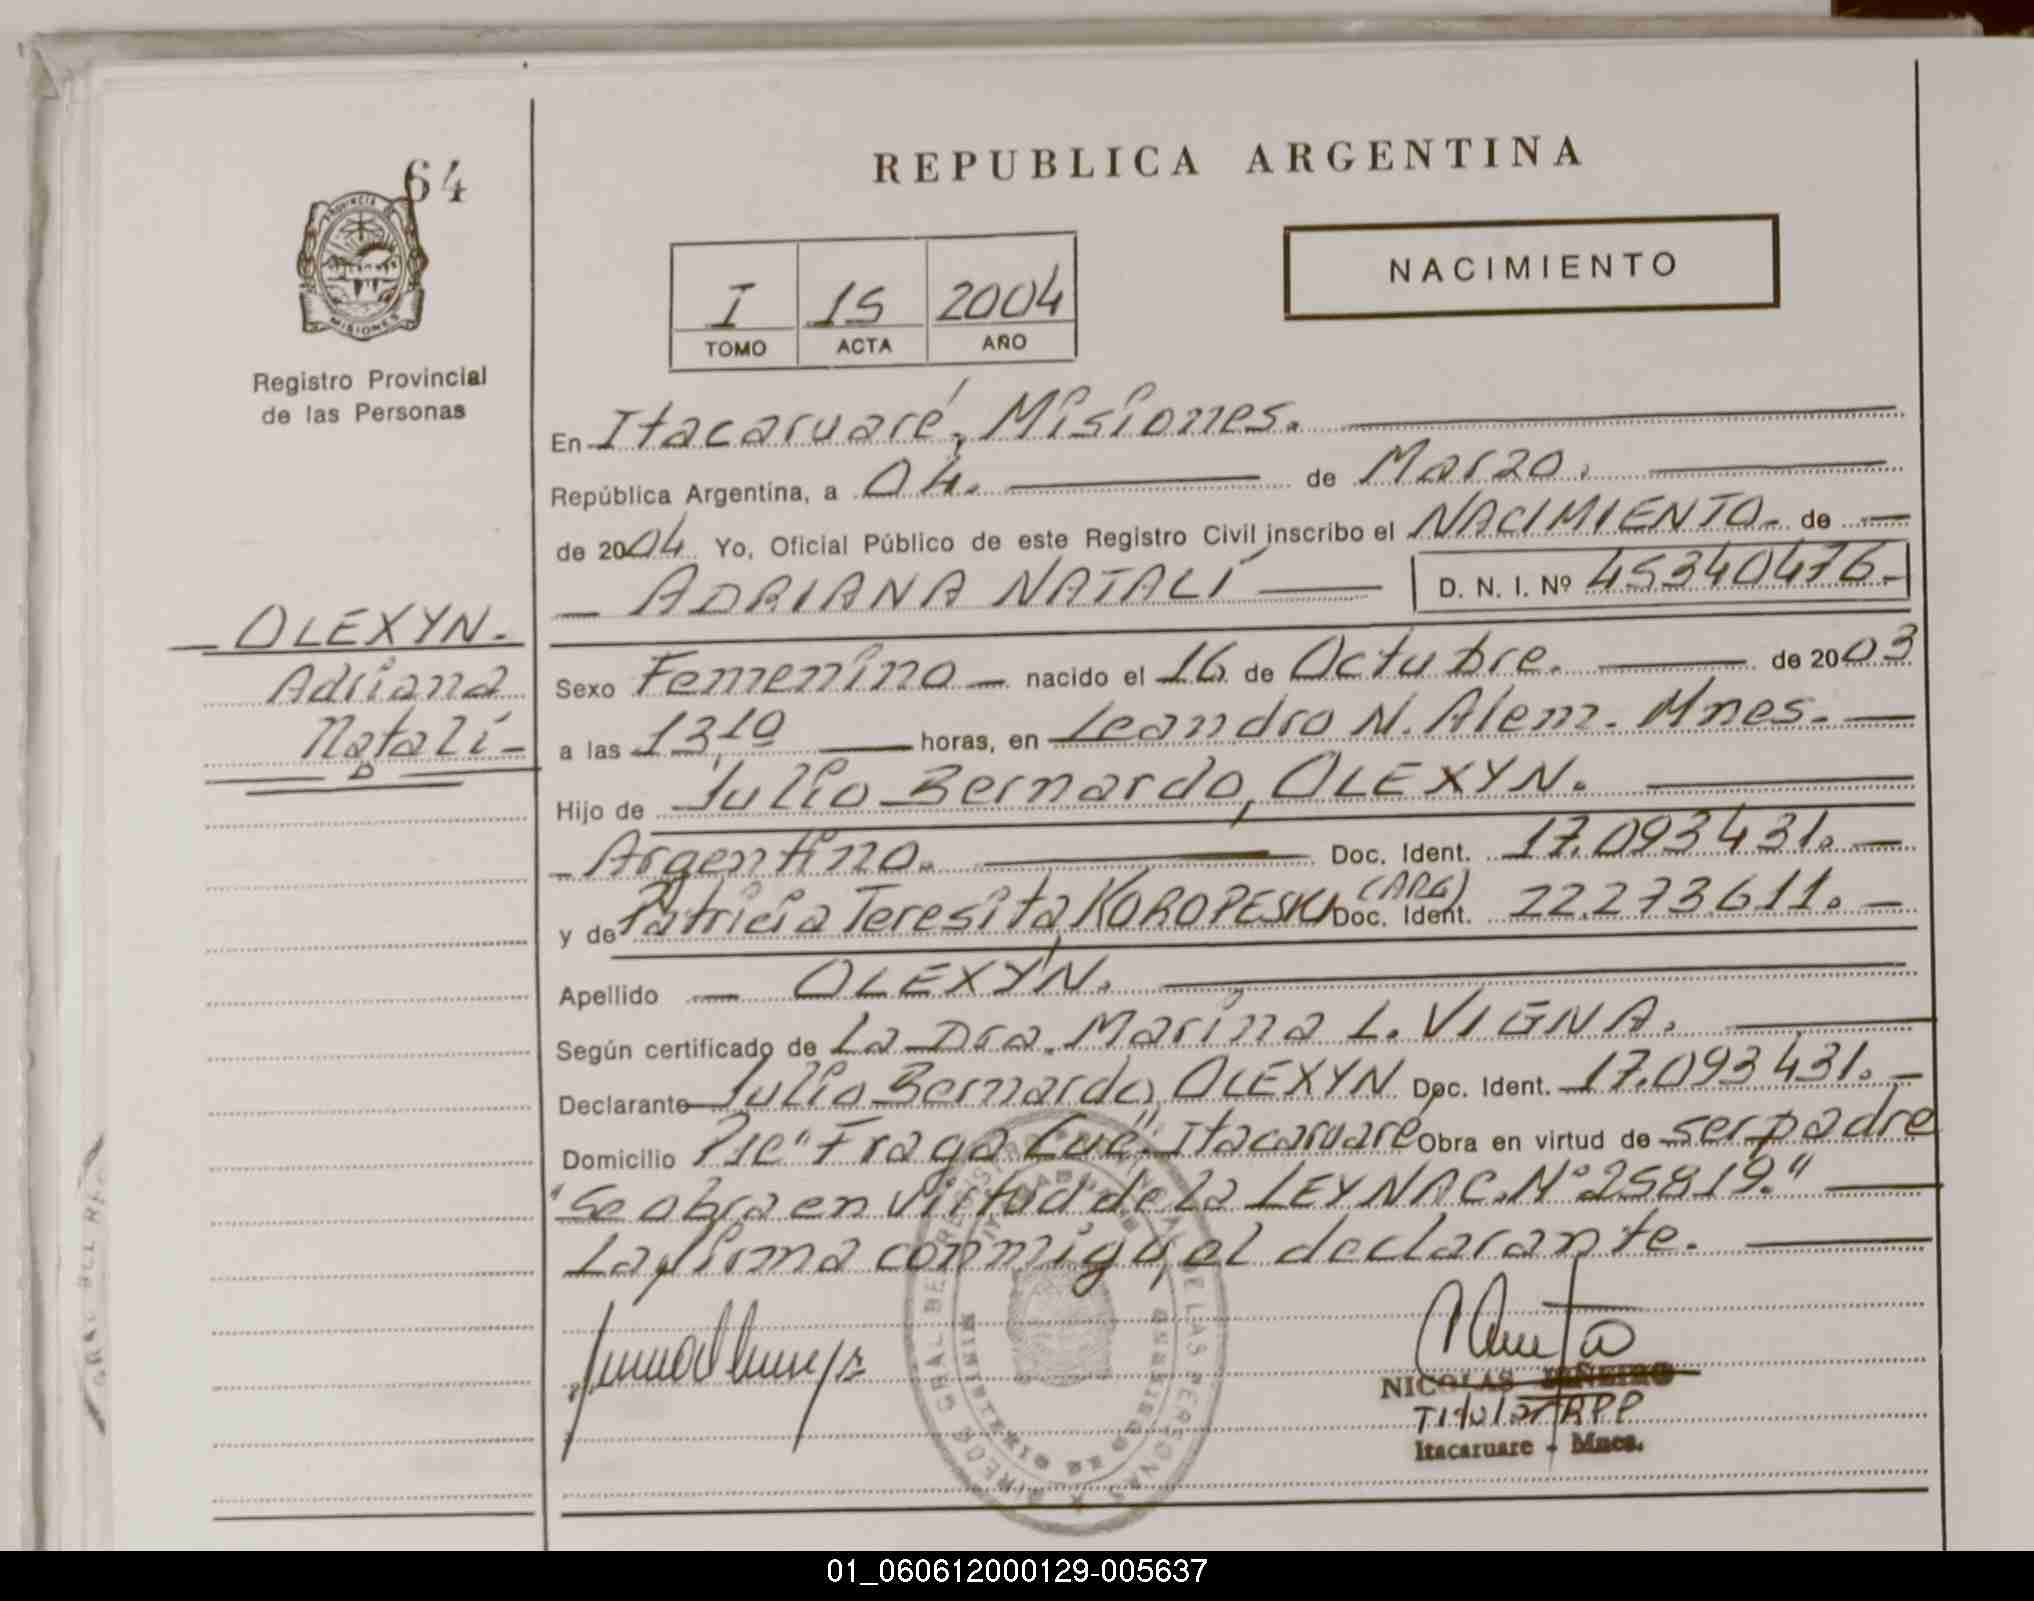 64
REPUBLICA ARGENTINA
PROVINCIA DE
MISIONES
Registro Provincial
de las Personas
NACIMIENTO
I 15 2004
TOMO ACTA AÑO
En Itacaruaré, Misiones.
República Argentina, a 04. de Marzo.
de 2004 Yo, Oficial Público de este Registro Civil inscribo el NACIMIENTO de
ADRIANA NATALÍ D. N. I. Nº 45340476-
OLEXYN.
Adriana
Natalí-
Sexo Femenino nacido el 16 de Octubre. de 2003
a las 13,10 horas, en Leandro N. Alem. Mnes.
Hijo de Julio Bernardo, OLEXYN.
Argentino. Doc. Ident. 17.093431.
y de Patricia Teresita, KOROPESKI (ARG) Doc. Ident. 22.273.611.
Apellido OLEXYN.
Según certificado de La Dra. Marina L. VIGNA.
Declarante Julio Bernardo, OLEXYN Doc. Ident. 17.093431.
Domicilio Pje "Fraga Cué". Itacaruaré Obra en virtud de ser padre
"Se obra en virtud de la LEY NAC. Nº 25819."
La firma conmigo, el declarante.
NICOLAS
Titular RPP
Itacaruare - Mnes.
01_060612000129-005637